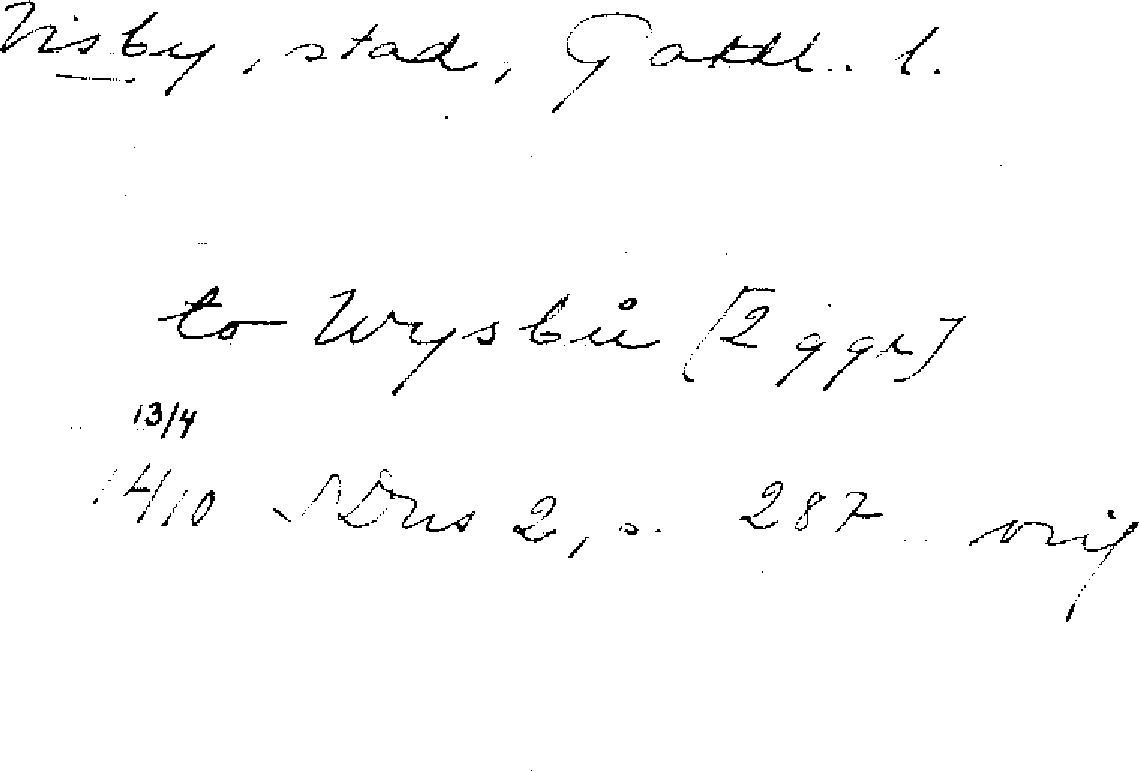 Visby, stad, Gotkl. l.
to Wysbů [2 ggr]
13/4
1410 SDns 2, s. 287 orig